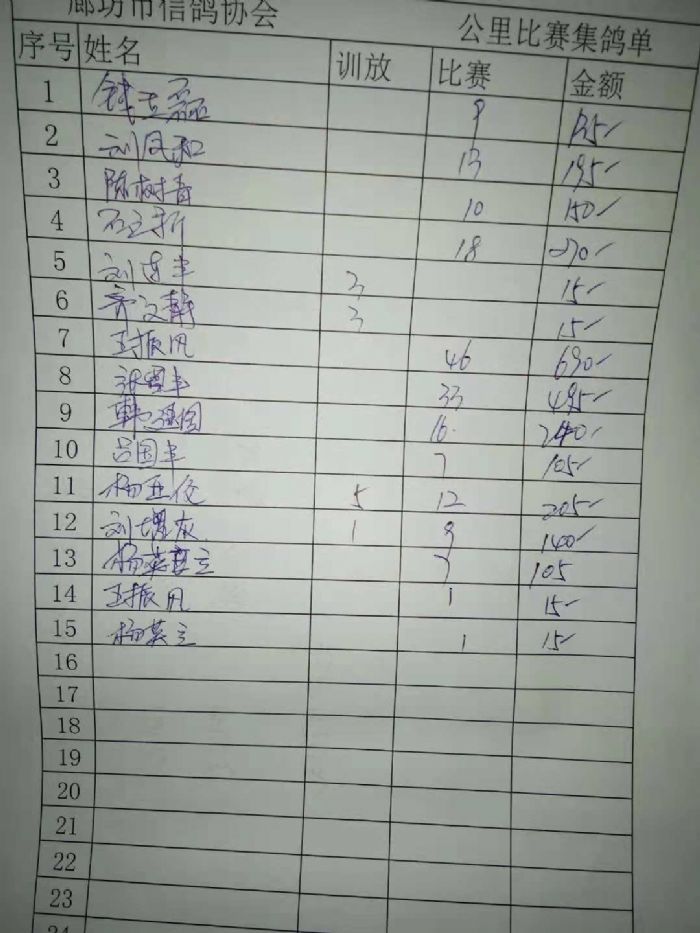 廊坊市信鸽协会 公里比赛集鸽单
序号 姓名 训放 比赛 金额
1 钱志磊 9 135
2 刘凤和 13 195
3 陈树青 10 150
4 石立新 18 270
5 刘连丰 3 15
6 齐文静 3 15
7 王振凡 46 690
8 33 495
9 韩 16 240
10 吕国丰 7 105
11 杨亚伦 5 12 205
12 刘 1 9 140
13 杨英立 7 105
14 王振凡 1 15
15 杨英立 1 15
16
17
18
19
20
21
22
23
24